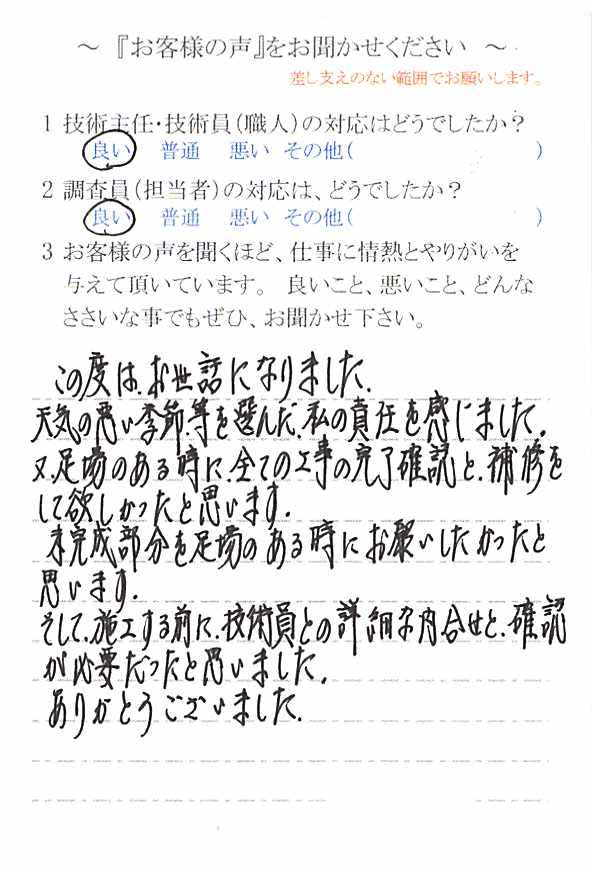 ～『お客様の声』をお聞かせください ～
差し支えのない範囲でお願いします。
1 技術主任・技術員(職人)の対応はどうでしたか？
良い 普通 悪い その他( )
2 調査員(担当者)の対応は、どうでしたか？
良い 普通 悪い その他( )
3 お客様の声を聞くほど、仕事に情熱とやりがいを
与えて頂いています。 良いこと、悪いこと、どんな
ささいな事でもぜひ、お聞かせ下さい。
この度は、お世話になりました。
天気の悪い季節等を選んだ、私の責任を感じました。
又、足場のある時に、全ての工事の完了確認と、補修を
して欲しかったと思います。
未完成部分を足場のある時にお願いしたかったと
思います。
そして、施工する前に、技術員との詳細な内合せと、確認
が必要だったと思いました。
ありがとうございました。